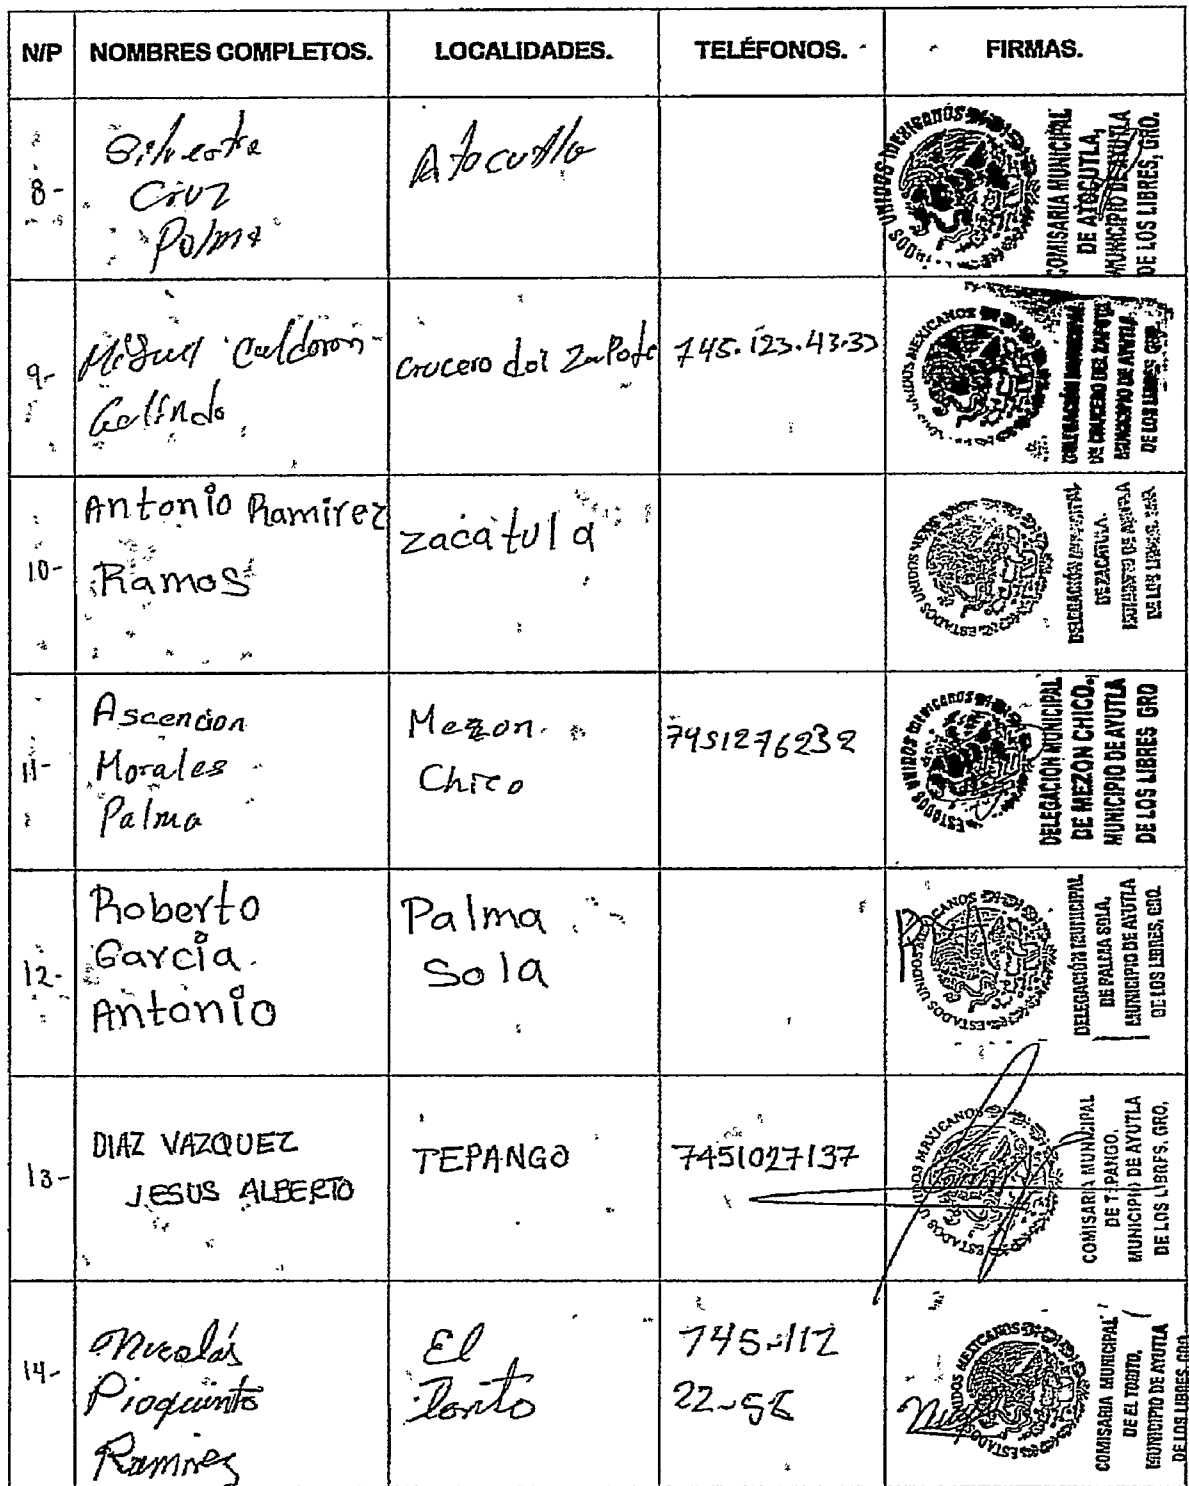 N/P NOMBRES COMPLETOS. LOCALIDADES. TELÉFONOS. FIRMAS.
8-
Silvestre
Cruz
Palma
Atocutla
ESTADOS UNIDOS MEXICANOS
COMISARIA MUNICIPAL
DE ATOCUTLA,
MUNICIPIO DE AYUTLA
DE LOS LIBRES, GRO.
9-
Miguel Calderon
Galindo
Crucero del Zapote
745.123.43.33
UNIDOS MEXICANOS
DELEGACIÓN MUNICIPAL
DE CRUCERO DEL ZAPOTE
MUNICIPIO DE AYUTLA
DE LOS LIBRES GRO.
10-
Antonio Ramirez
Ramos
zacatula
ESTADOS UNIDOS MEXICANOS
DELEGACIÓN MUNICIPAL
DE ZACATULA.
MUNICIPIO DE AYUTLA
DE LOS LIBRES, GRO.
11-
Ascencion
Morales
Palma
Mezon
Chico
7451276232
ESTADOS UNIDOS MEXICANOS
DELEGACION MUNICIPAL
DE MEZON CHICO,
MUNICIPIO DE AYUTLA
DE LOS LIBRES GRO
12-
Roberto
García
Antonio
Palma
Sola
ESTADOS UNIDOS MEXICANOS
DELEGACIÓN MUNICIPAL
DE PALMA SOLA,
MUNICIPIO DE AYUTLA
DE LOS LIBRES, GRO.
13-
DIAZ VAZQUEZ
JESUS ALBERTO
TEPANGO
7451027137
ESTADOS UNIDOS MEXICANOS
COMISARIA MUNICIPAL
DE TEPANGO.
MUNICIPIO DE AYUTLA
DE LOS LIBRES, GRO,
14-
Nicolás
Pioquinto
Ramirez
El
Torito
745-112
22-58
ESTADOS UNIDOS MEXICANOS
COMISARIA MUNICIPAL
DE EL TORITO,
MUNICIPIO DE AYUTLA
DE LOS LIBRES, GRO.